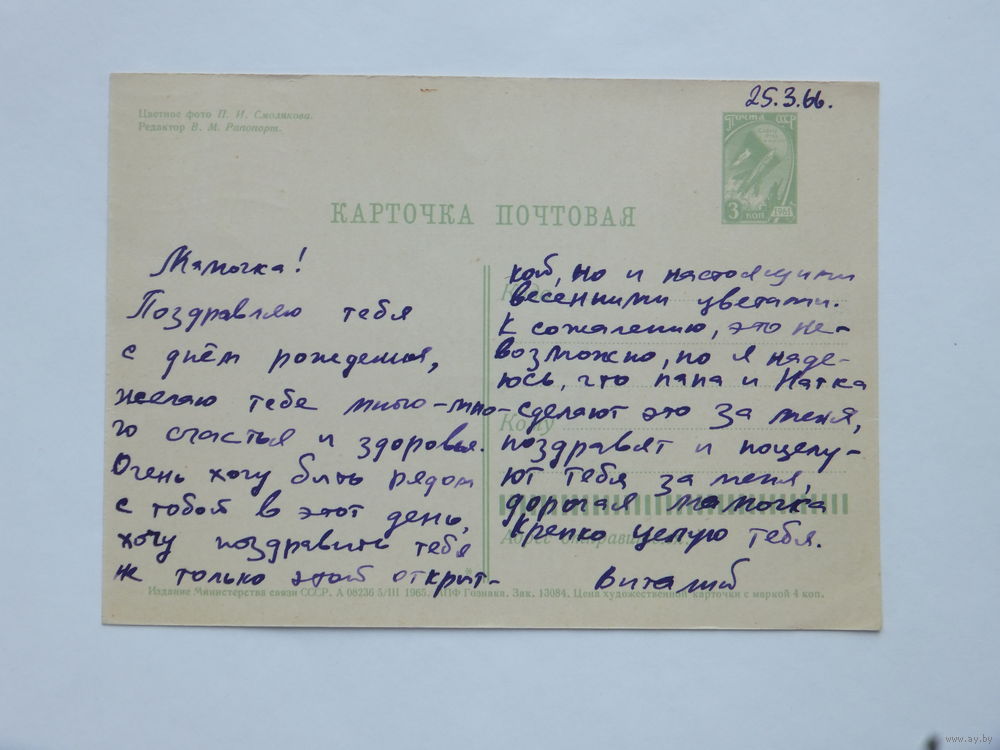 25.3.66.
Цветное фото П. И. Смолякова.
Редактор В. М. Рапопорт.
ПОЧТА СССР
3 КОП 1961
КАРТОЧКА ПОЧТОВАЯ
Мамочка!
Поздравляю тебя
с днём рождения,
желаю тебе много-мно-
го счастья и здоровья.
Очень хочу быть рядом
с тобой в этот день,
хочу поздравить тебя
не только этой открыт-
кой, но и настоящими
весенними цветами.
К сожалению, это не-
возможно, но я наде-
юсь, что папа и Натка
сделают это за меня,
поздравят и поцелу-
ют тебя за меня,
дорогая мамочка
Крепко целую тебя.
Виталий
Куда
Кому
Адрес отправителя
Издание Министерства связи СССР. А 08236 5/III 1965. МПФ Гознака. Зак. 13084. Цена художественной карточки с маркой 4 коп.
www.ay.by